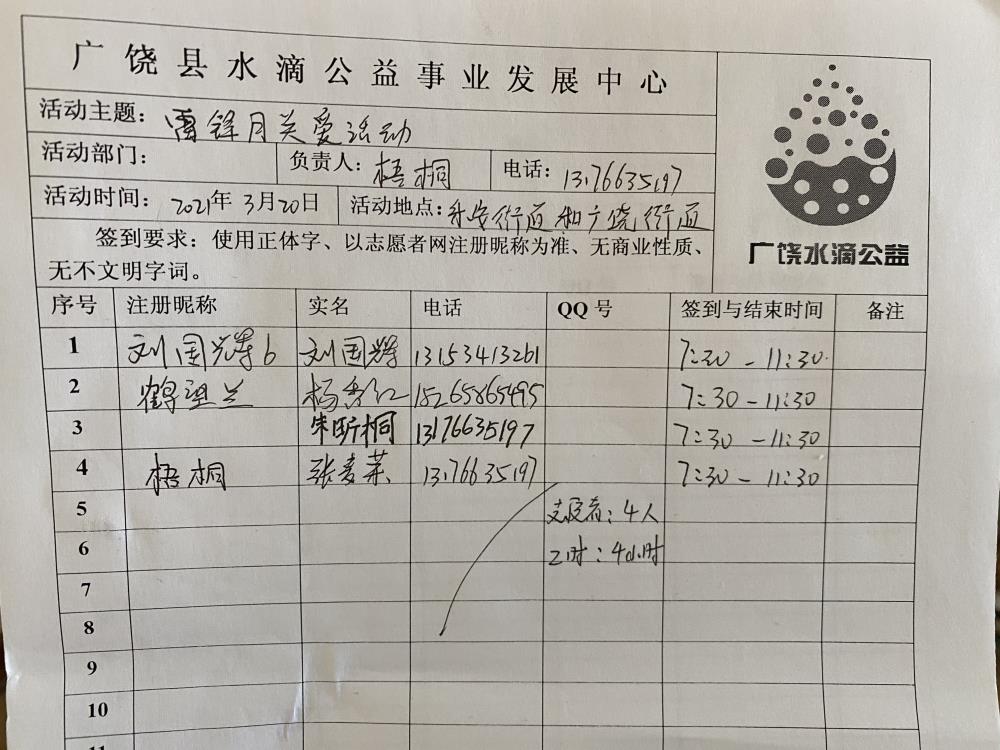 广饶县水滴公益事业发展中心
活动主题：雷锋月关爱活动
活动部门： 负责人：梧桐 电话：13176635197
活动时间：2021年3月20日 活动地点：乐安街道和广饶街道
签到要求：使用正体字、以志愿者网注册昵称为准、无商业性质、
无不文明字词。
广饶水滴公益
序号 注册昵称 实名 电话 QQ号 签到与结束时间 备注
1 刘国辉6 刘国辉 13153413261 7:30-11:30
2 鹤望兰 杨秀红 15265865495 7:30-11:30
3 朱昕桐 13176635197 7:30-11:30
4 梧桐 张麦荣 13176635197 7:30-11:30
5 志愿者：4人
6 工时：4小时
7
8
9
10
11